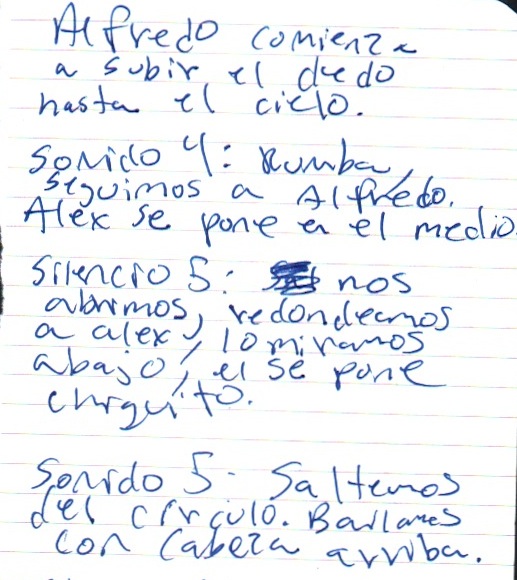 Alfredo comienza
a subir el dedo
hasta el cielo.
Sonido 4: Rumba,
seguimos a Alfredo.
Alex se pone en el medio.
Silencio 5: nos
abrimos, redondeamos
a alex, lo miramos
abajo, el se pone
chiquito.
Sonido 5- Saltemos
del círculo. Bailamos
con Cabeza arriba.